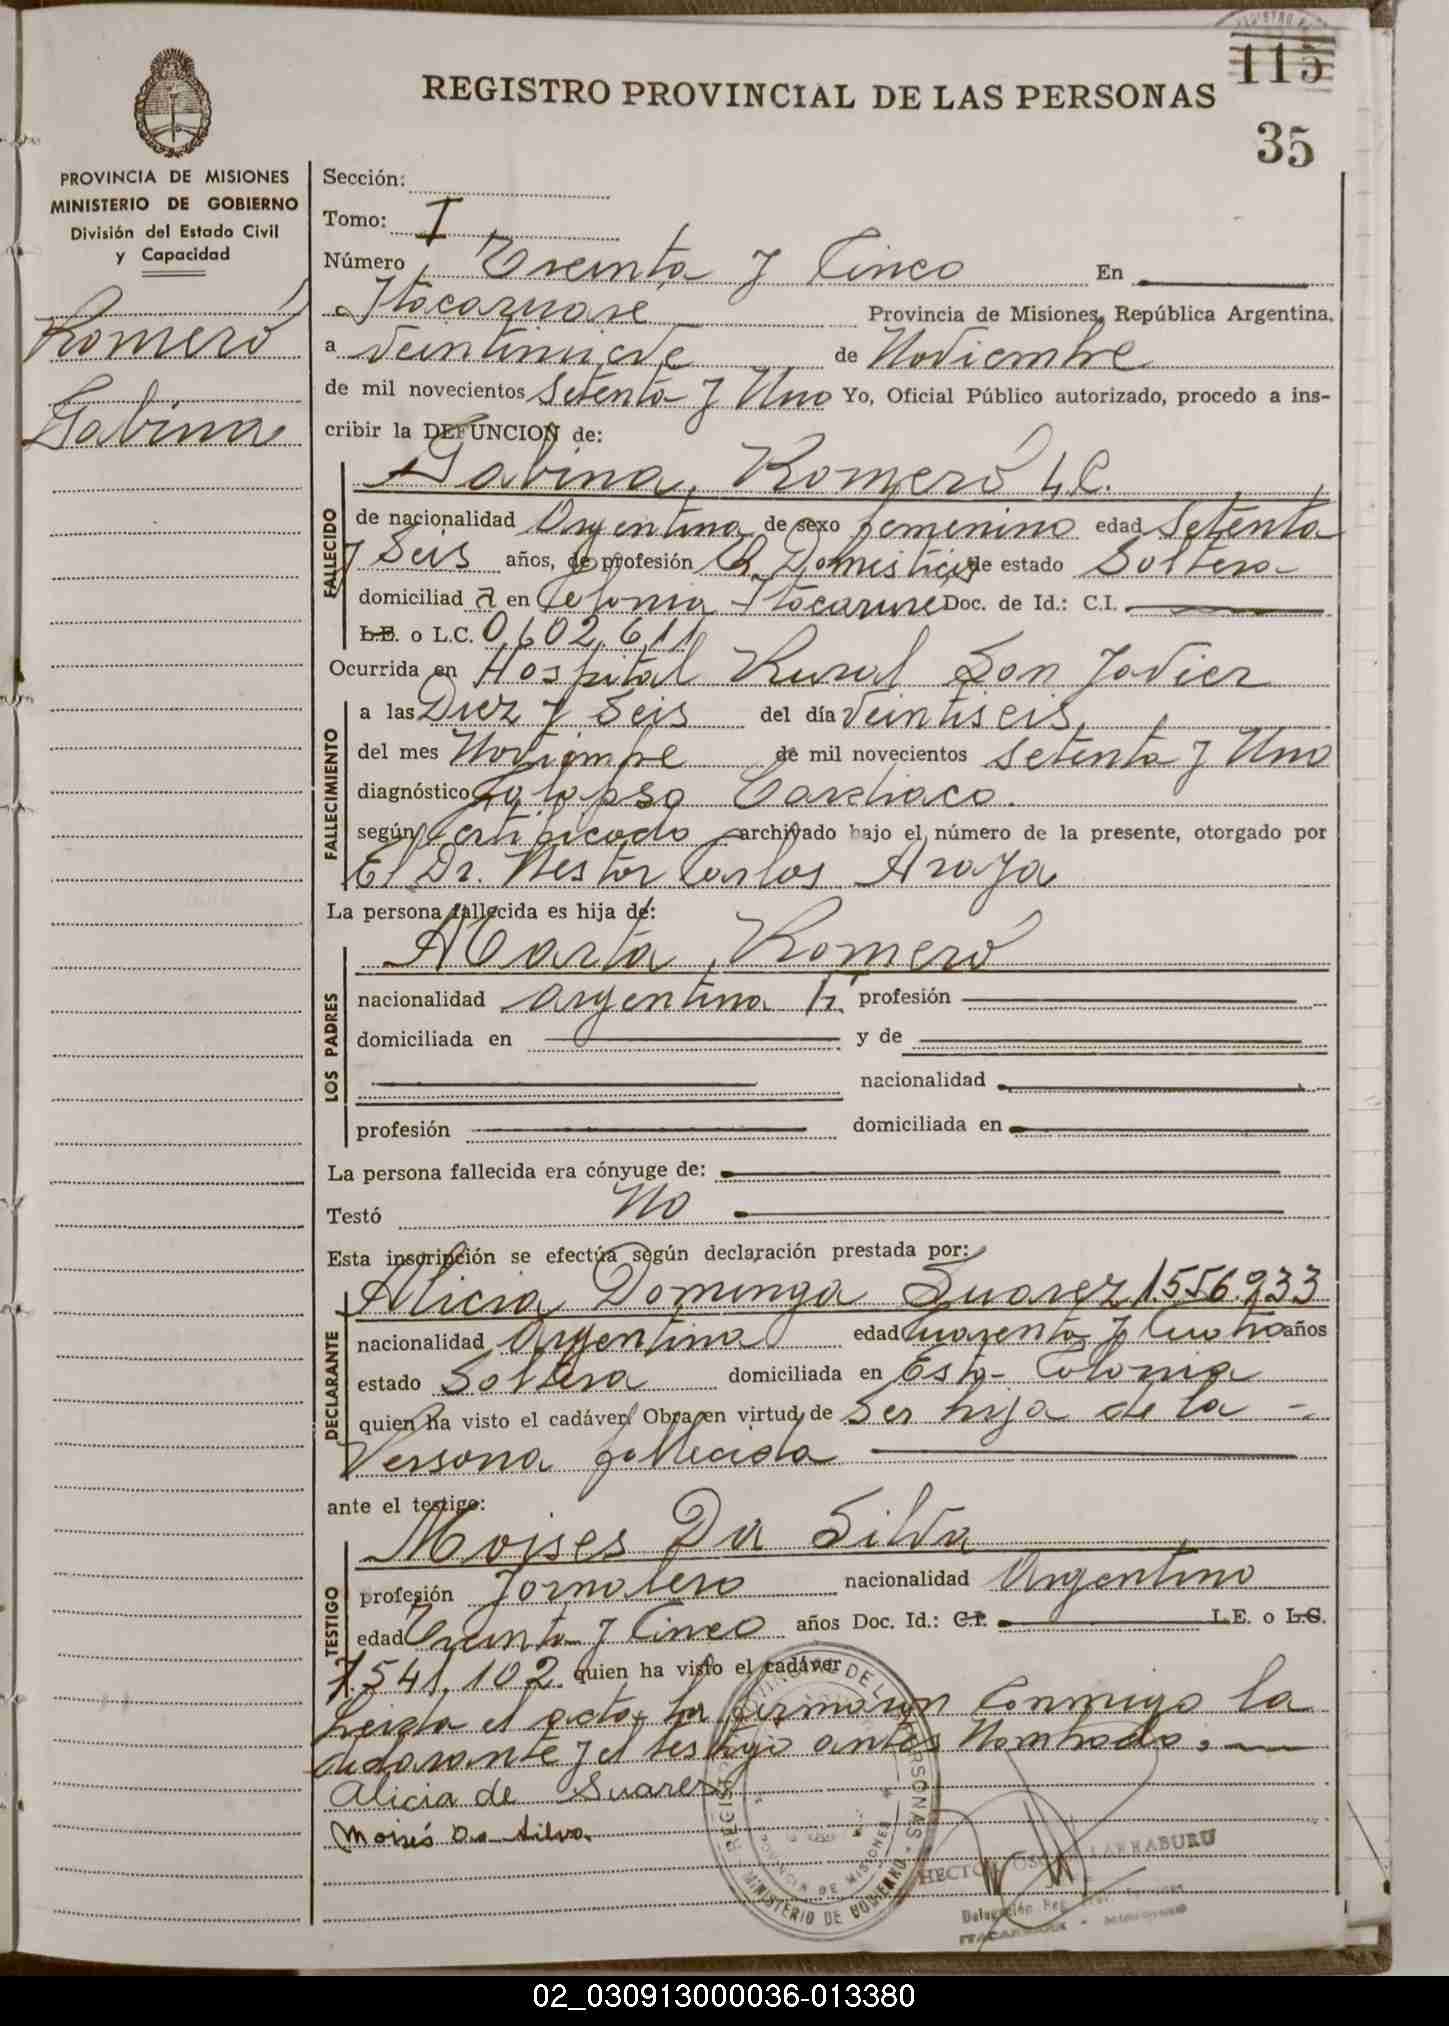 115
REGISTRO PROVINCIAL DE LAS PERSONAS
35
PROVINCIA DE MISIONES
MINISTERIO DE GOBIERNO
División del Estado Civil
y Capacidad
Romero
Sabina
Sección:
Tomo: I
Número Treinta y Cinco En
Itacaruare Provincia de Misiones, República Argentina,
a Veintinueve de Noviembre
de mil novecientos Setenta y Uno Yo, Oficial Público autorizado, procedo a ins-
cribir la DEFUNCION de:
Sabina Romero
FALLECIDO
de nacionalidad Argentina de sexo femenino edad Setenta
y Seis años, de profesión Q. Domesticos de estado Soltera
domiciliad a en Colonia Itacaruare Doc. de Id.: C.I.
L.E. o L.C. 0.602.611
Ocurrida en Hospital Rural San Javier
FALLECIMIENTO
a las Diez y Seis del día Veintiseis
del mes Noviembre de mil novecientos Setenta y Uno
diagnóstico Colapso Cardiaco.
según Certificado archivado bajo el número de la presente, otorgado por
El Dr. Nestor Carlos Araya
La persona fallecida es hija de:
Marta Romero
LOS PADRES
nacionalidad argentina profesión
domiciliada en y de
nacionalidad
profesión domiciliada en
La persona fallecida era cónyuge de:
Testó No
Esta inscripción se efectúa según declaración prestada por:
Alicia Dominga Suarez 1.556.933
DECLARANTE
nacionalidad Argentina edad Cuarenta y Cuatro años
estado Soltera domiciliada en Esta Colonia
quien ha visto el cadáver Obra en virtud de Ser hija de la
Persona fallecida
ante el testigo:
Moises Da Silva
TESTIGO
profesión Jornalero nacionalidad Argentino
edad Treinta y Cinco años Doc. Id.: C.I. L.E. o L.C.
7.541.102 quien ha visto el cadáver
Leida el acta, la firmaron Conmigo la
declarante y el testigo antes Nombrado.
Alicia de Suares
Moisés Da Silva
MINISTERIO DE GOBIERNO
PROVINCIA DE MISIONES
HECTOR LARRABURU
02_030913000036-013380